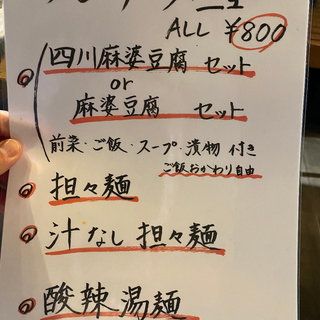 ALL ¥800
四川麻婆豆腐 セット
or
麻婆豆腐 セット
前菜・ご飯・スープ・漬物 付き
ご飯おかわり自由
担々麺
汁なし 担々麺
酸辣湯麺